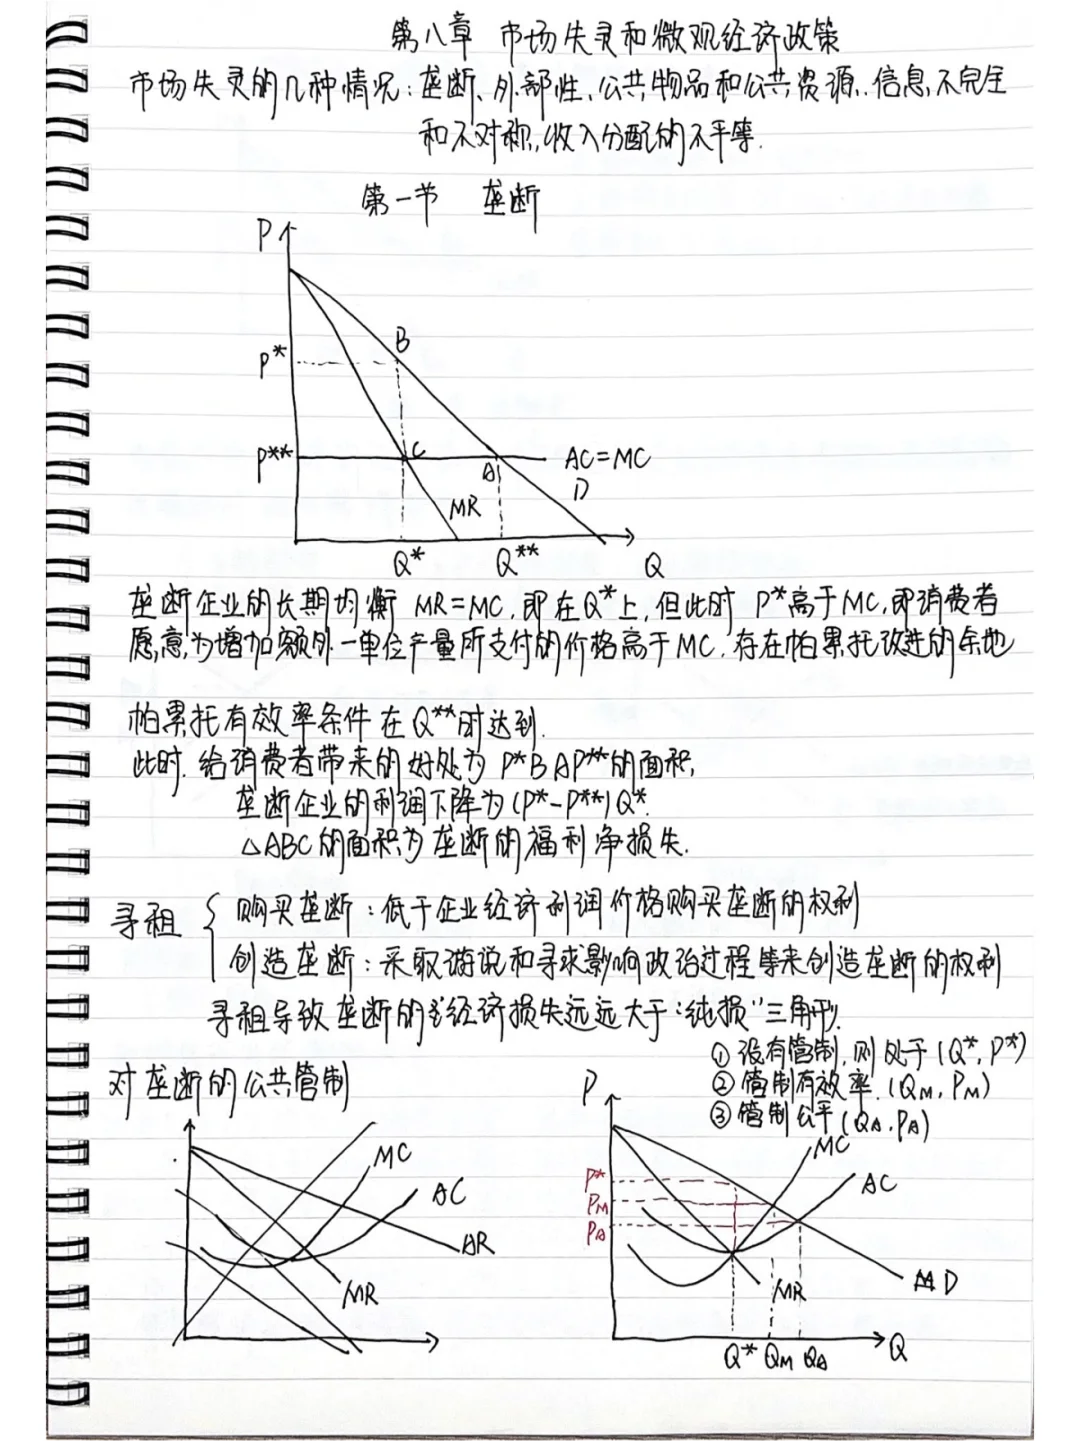 第八章 市场失灵和微观经济政策
市场失灵的几种情况:垄断、外部性、公共物品和公共资源、信息不完全
和不对称,收入分配的不平等.
第一节 垄断
P
B
P*
P**
C
A
AC=MC
D
MR
Q*
Q**
Q
垄断企业的长期均衡 MR=MC,即在Q*上,但此时 P*高于MC,即消费者
愿意为增加额外一单位产量所支付的价格高于MC.存在帕累托改进的余地
帕累托有效率条件在Q**时达到.
此时.给消费者带来的好处为 P*BAP**的面积,
垄断企业的利润下降为(P*-P**)Q*.
△ABC的面积为垄断的福利净损失.
寻租
购买垄断:低于企业经济利润价格购买垄断的权利
创造垄断:采取游说和寻求影响政治过程等来创造垄断的权利
寻租导致垄断的经济损失远远大于“纯损”三角形.
对垄断的公共管制
① 没有管制,则处于(Q*,P*)
② 管制有效率.(QM,PM)
③ 管制公平(QA.PA)
MC
AC
AR
MR
P
P*
PM
PA
MC
AC
D
MR
Q* QM QA
Q